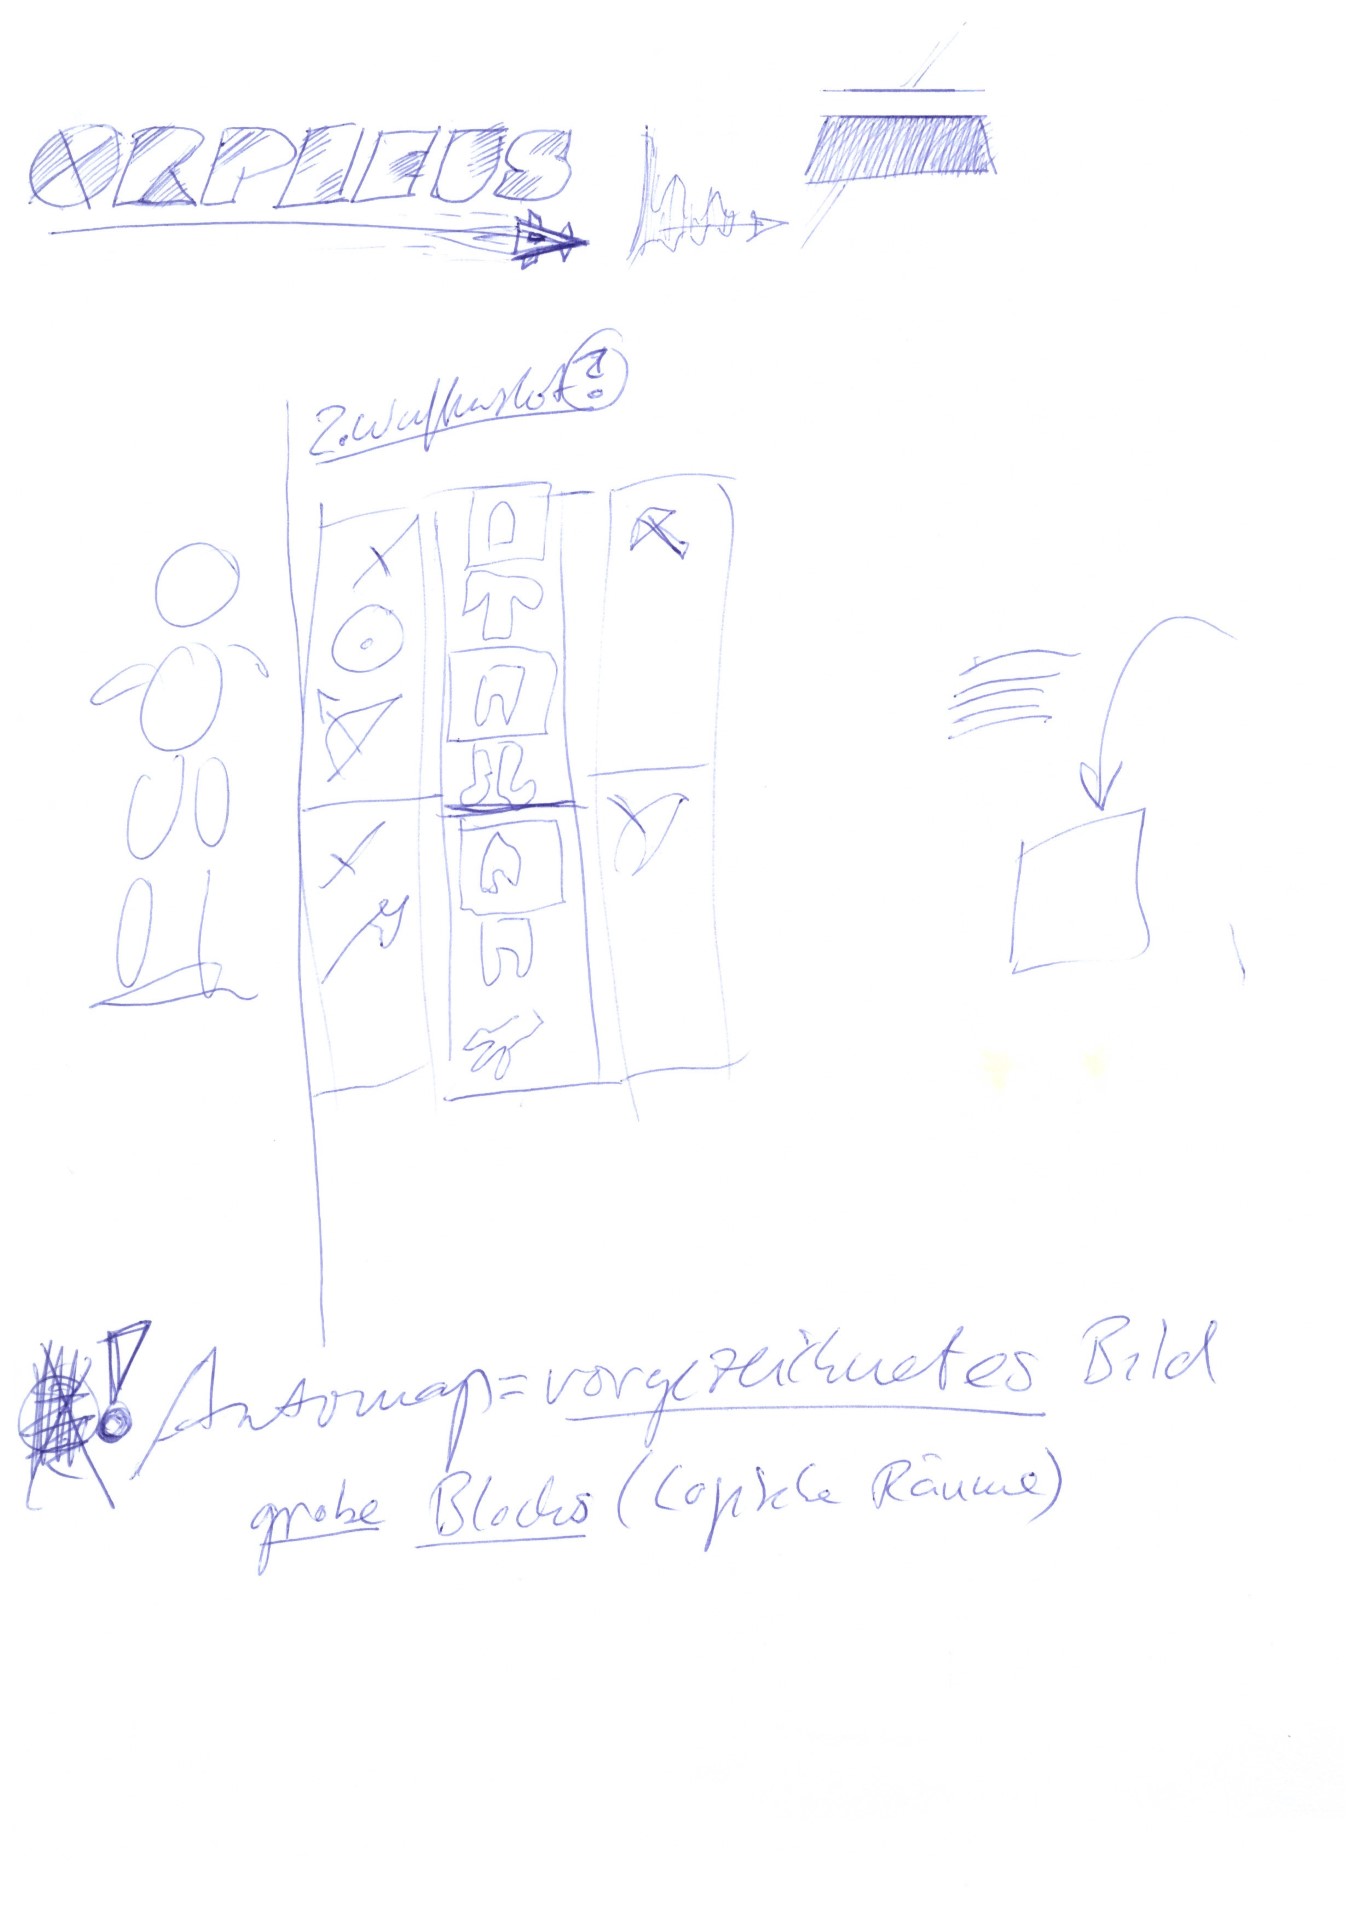 ORPHEUS
2. Waffenslot?
! Automap = vorgezeichnetes Bild
grobe Blocks (Logische Räume)